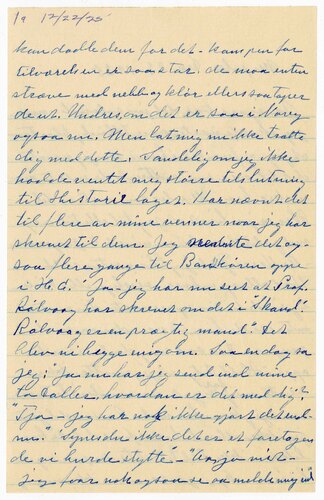 12/22/25
kan dadle dem for det - kampen for
tilværelsen er saa stor. de maa enten
stræve med nebb og klør ellers saa
de ut. Undres, om det er saa i Norge
ogsaa nu. Men lat mig nu ikke trætte
dig med dette. Sandelig om jeg ikke
hadde ventet mig større tilslutning
til Historie laget. Har nævnt det
til flere av mine venner naar jeg har
skrevet til dem. Jeg nævnte det og-
saa flere gange til oppe
i H.C. "Ja - jeg har nu seet at Prof.
Rölvaag har skrevet om det i "Skand".
Rölvaag er en prægtig mand" Det
blev vi begge enig om. Saa en dag sa
jeg: Ja nu har jeg send ind mine
to daller, hvordan er det med dig?"
"Tja - jeg har nok ikke gjort det end-
nu." Synes du ikke det er et foretagen
de vi burde støtte" - "Aa, jo vist -
jeg faar nok ogsaa se og melde mig ind"